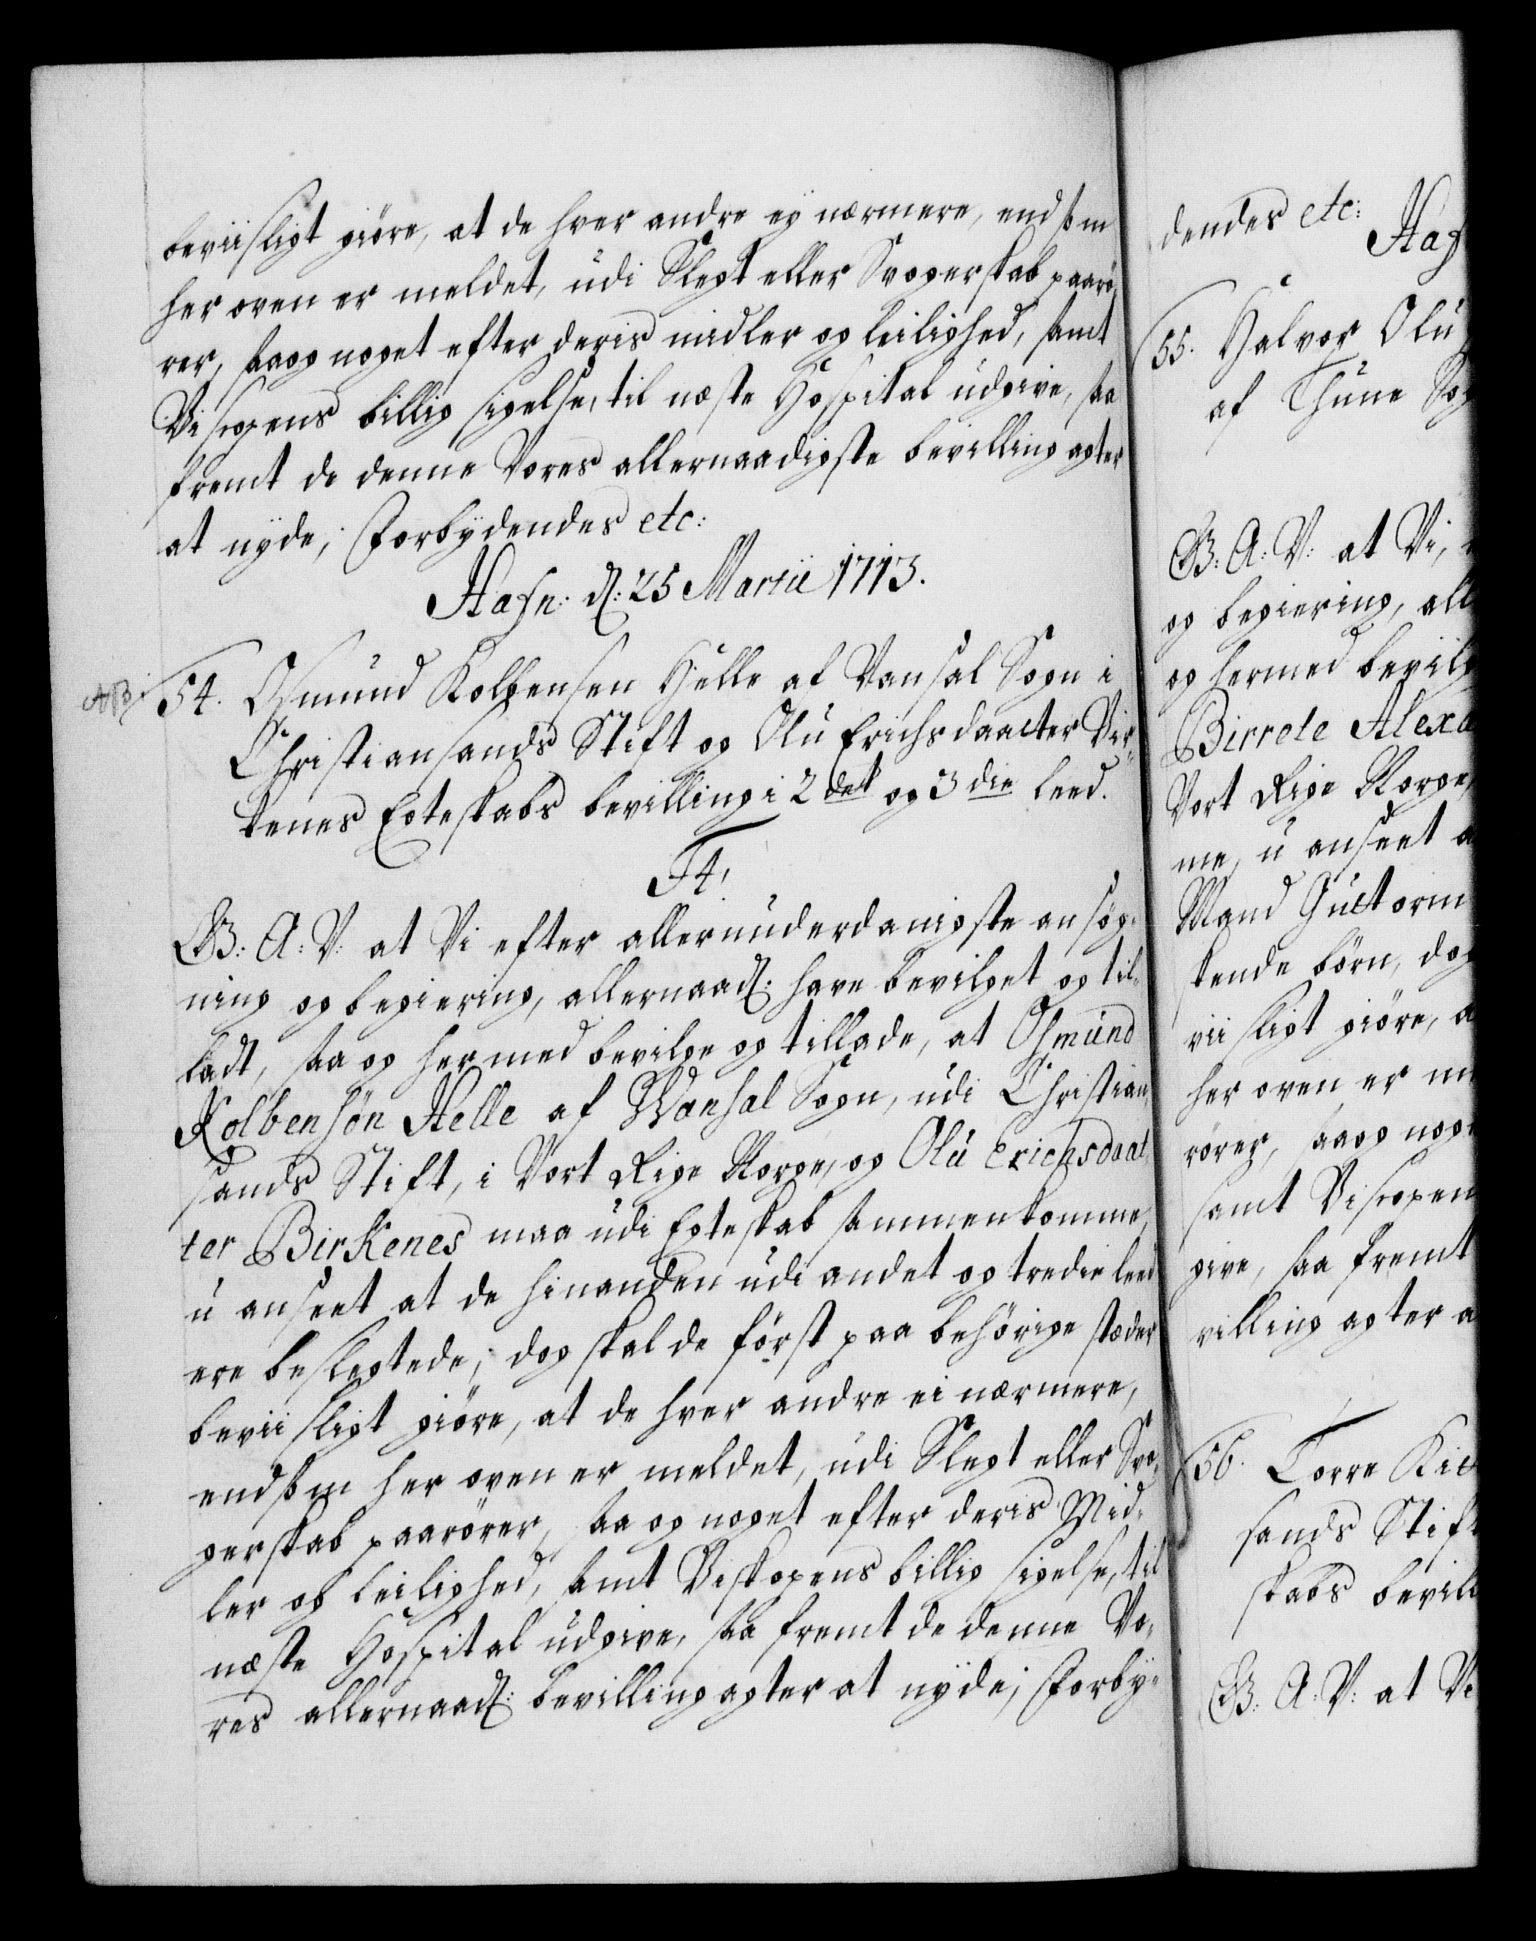 beviisligt giøre, at de hver andre ey nærmere, end som
her oven er meldet, udi Slegt eller Svogerskab paarø,
rer, saa og noget efter deris midler og leilighed, samt
Viscopens billig sigelse, til næste Hospital udgive, saa
fremt de denne Vores allernaadigste bevilling agter
at nyde, Forbydendes etc:
Hafn: d: 25 Martii 1713.
NB 54. Osmund Kolbensen Helle af Vansal Sogn i
Christiansands Stift og Olu Erichsdaatter Bir,
kenes Egteskabs bevilling i 2det og 3die leed.
F4,
G: A: V: at Vi efter allerunderdanigste ansøg,
ning og begiering, allernaad: have bevilget og til,
ladt, saa og hermed bevilge og tillade, at Osmund
Kolbensøn Helle af Wansal Sogn, udi Christian,
sands Stift, i Vort Rige Norge, og Olu Erichsdaat,
ter Birkenes maa udi Egteskab sammenkomme,
u anseet at de hinanden udi andet og tredie leed
ere beslegtede, dog skal de først paa behørige stæder
beviisligt giøre, at de hver andre ei nærmere,
end som her oven er meldet, udi Slegt eller Svo,
gerskab paarører, saa og noget efter deris Mid,
ler og leilighed, samt Viskopens billig sigelse, til
næste Hospital udgive, saa fremt de denne Vo,
res allernaad: bevilling agter at nyde; Forby,
dendes etc:
Haf
55. Halvor Olu
af Thune Sog
G: A: V: at Vi,
og begiering, all
og hermed bevilg
Birrete Alexa
Vort Rige Norge,
me, u anseet a
Mand Guttorm
kende børn, dog
viisligt giøre, a
her oven er m
rører, saa og noge
samt Viscopen
give, saa fremt
villing agter a
56. Torre Kie
sands Stift
skabs bevil
G: A: V: at Vi